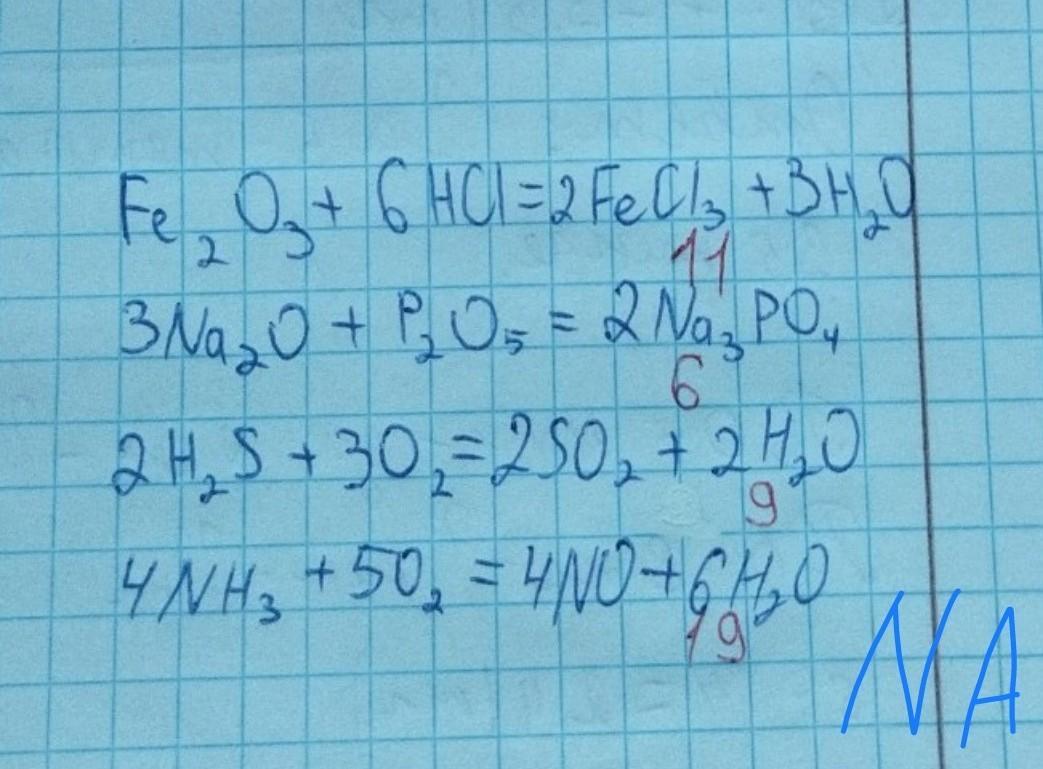 Fe₂O₃ + 6HCl = 2FeCl₃ + 3H₂O
11
3Na₂O + P₂O₅ = 2Na₃PO₄
6
2H₂S + 3O₂ = 2SO₂ + 2H₂O
9
4NH₃ + 5O₂ = 4NO + 6H₂O
19
NA